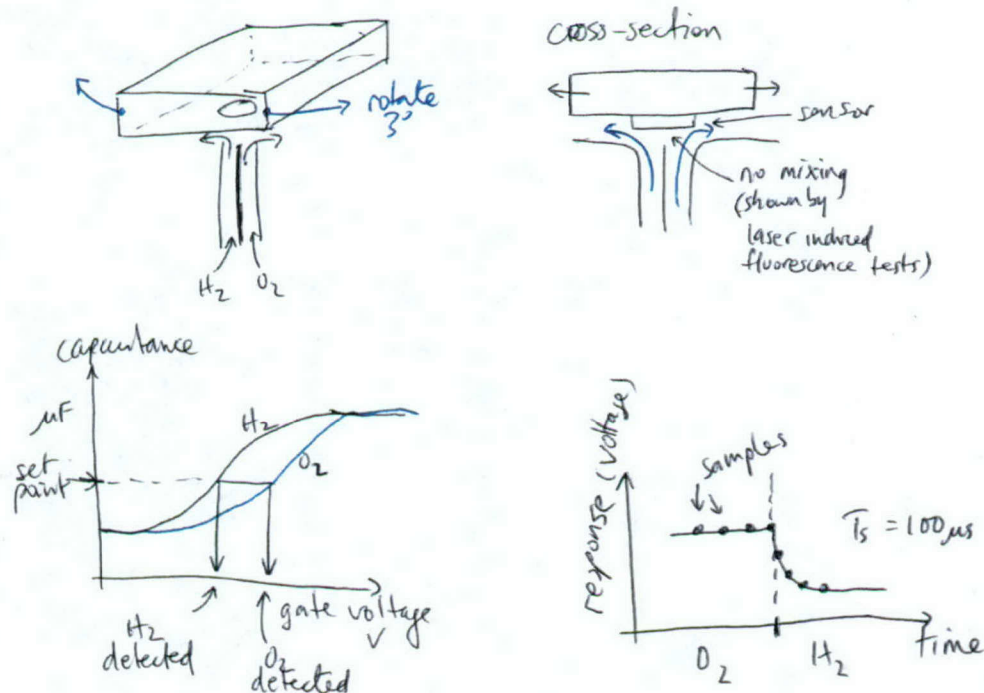 cross-section
rotate
3°
sensor
no mixing
(shown by
laser induced
fluorescence tests)
H2 O2
capacitance
μF
set
point
H2
O2
gate voltage
V
H2
detected
O2
detected
response (voltage)
samples
Ts = 100 μs
O2 H2
time